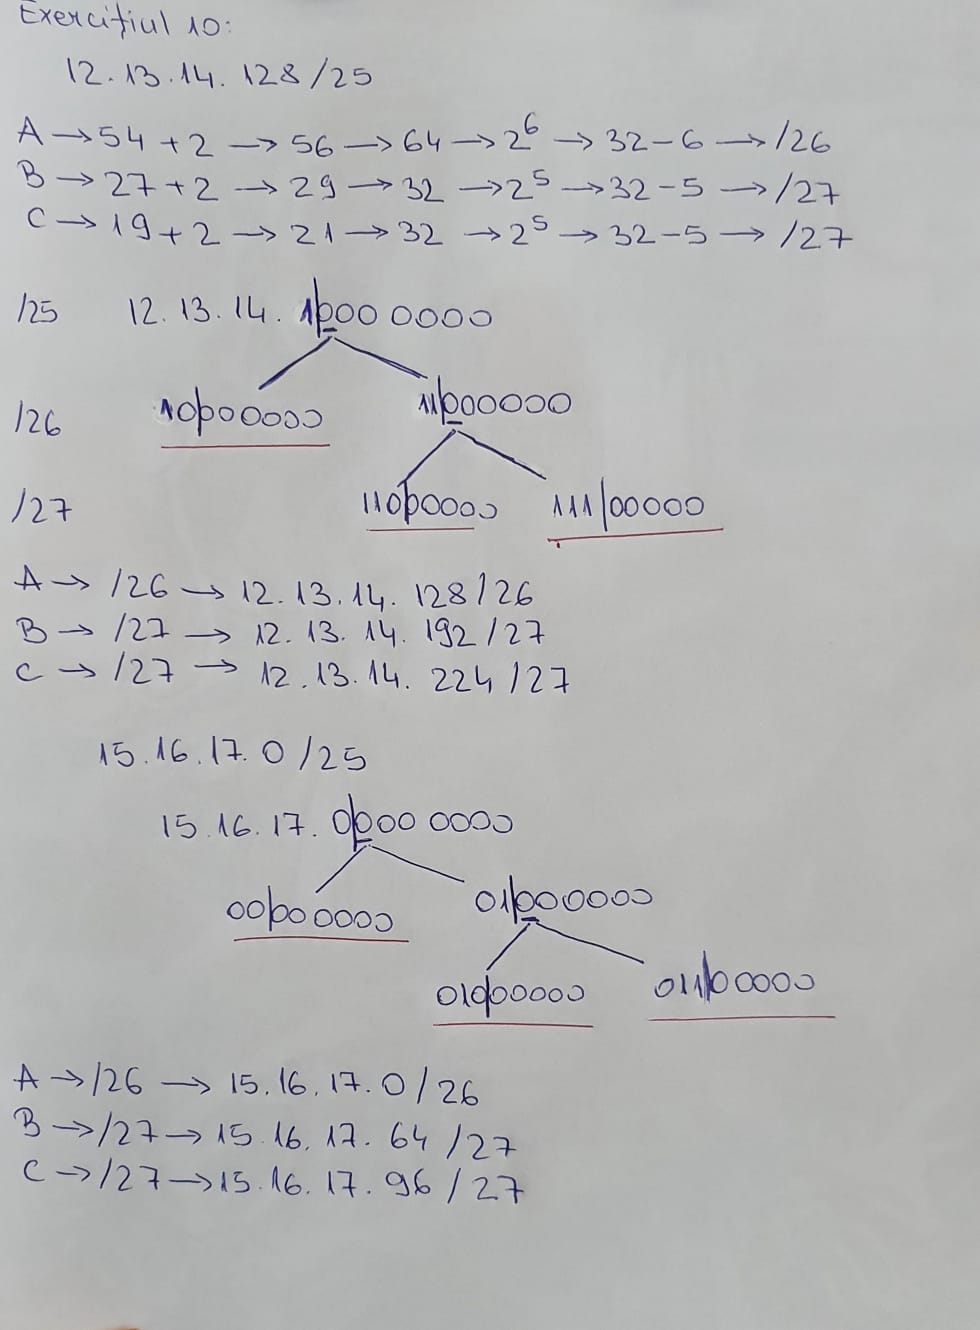 Exercițiul 10:
12.13.14.128/25
A → 54+2 → 56 → 64 → 2⁶ → 32-6 → /26
B → 27+2 → 29 → 32 → 2⁵ → 32-5 → /27
C → 19+2 → 21 → 32 → 2⁵ → 32-5 → /27
/25 12.13.14. 1|000 0000
/26 10|000000 11|000000
/27 110|00000 111|00000
A → /26 → 12.13.14.128/26
B → /27 → 12.13.14.192/27
C → /27 → 12.13.14.224/27
15.16.17.0/25
15.16.17. 0|000 0000
00|000000 01|000000
010|00000 011|00000
A → /26 → 15.16.17.0/26
B → /27 → 15.16.17.64/27
C → /27 → 15.16.17.96/27